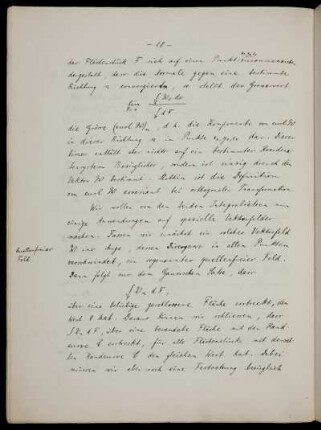 - 18 -
das Flächenstück F sich auf einen Punkt zusammenzieht
dergestalt, dass die Normale gegen eine bestimmte
Richtung n convergiert, so stellt der Grenzwert
lim ∫ / ∫ dF
die Grösse (curl W)n, d.h. die Komponente von curl W
in dieser Richtung n im Punkte dar. Dieser
enthält der nicht auf ein bestimmtes Koordina-
tensystem bezüglichen, sondern ist einzig durch den
Vektor W bestimmt. Mithin ist die Definition
von curl W invariant bei orthogonaler Transformation
Wir wollen von den beiden Integralsätzen nun
einige Anwendungen auf spezielle Vektorfelder
machen. Fassen wir zunächst ein solches Vektorfeld
W ins Auge, dessen Divergenz in allen Punkten
verschwindet, ein sogenanntes quellenfreies Feld.
Quellenfreies
Feld.
Dann folgt aus dem Gaussschen Satz, dass
∫ Wn dF,
über eine beliebige geschlossene Fläche erstreckt, den
Wert 0 hat. Daraus können wir schliessen, dass
∫ Wn dF, über eine berandete Fläche mit der Rand-
kurve C erstreckt, für alle Flächenstücke mit dersel-
ben Randkurve C den gleichen Wert hat. Dabei
müssen wir aber noch eine Festsetzung bezüglich